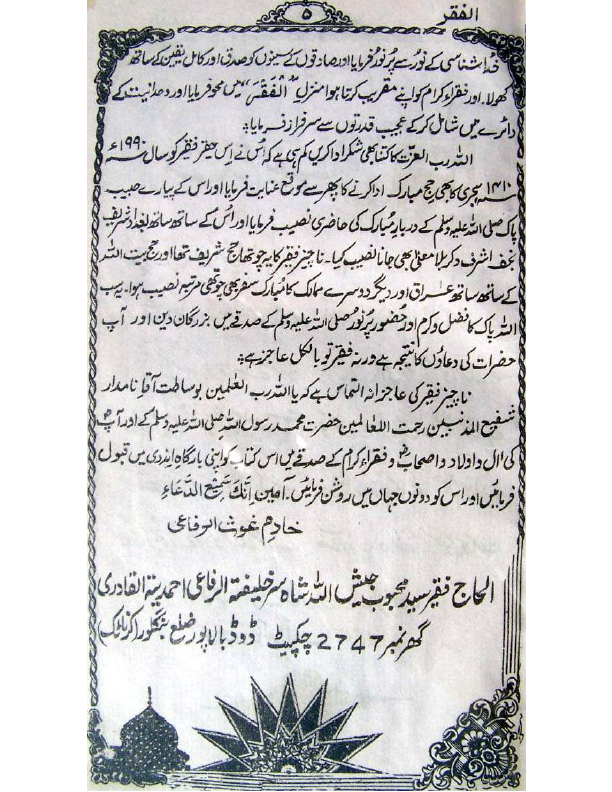 الفقر
۵
خدا شناسی کے نور سے پُر نور فرمایا اور صادقوں کے سینوں کو صدق اور کامل یقین کے ساتھ
کھولا۔ اور فقراء کرام کو اپنے مقرب کرتا ہوا منزل "الْفَقْر" میں محو فرمایا اور وحدانیت کے
دائرے میں شامل کر کے عجیب قدرتوں سے سرفراز فرمایا۔
اللہ رب العزت کا کتنا بھی شکر ادا کریں کم ہی ہے کہ اُس نے اِس حقیر فقیر کو سال ۱۹۹۰ء
۱۴۱۰ ہجری کا بھی حج مبارک ادا کرنے کا پھر سے موقع عنایت فرمایا اور اس کے پیارے حبیب
پاک صلی اللہ علیہ وسلم کے دربارِ مُبارک کی حاضری نصیب فرمایا اور اُس کے ساتھ ساتھ بغداد شریف
نجف اشرف و کربلا معلیٰ بھی جانا نصیب کیا۔ نا چیز فقیر کا یہ چوتھا حج شریف تھا اور حج بیت اللہ
کے ساتھ ساتھ عراق اور دیگر دوسرے ممالک کا مُبارک سفر بھی چوتھی مرتبہ نصیب ہوا۔ یہ سب
اللہ پاک کا فضل و کرم اور حُضور پُر نور صلی اللہ علیہ وسلم کے صدقے میں بزرگان دین اور آپ
حضرات کی دعاؤں کا نتیجہ ہے ورنہ فقیر تو بالکل عاجز ہے۔
نا چیز فقیر کی عاجزانہ التماس ہے کہ یا اللہ رب العٰلمین بوساطت آقا نامدار
شفیع المذنبین رحمت اللعالمین حضرت محمد رسول اللہ صلی اللہ علیہ وسلم کے اور آپ
کی آل و اولاد و اصحاب و فقراء کرام کے صدقے میں اس کتاب کو اپنی بارگاہ ایزدی میں قبول
فرمائیں اور اس کو دونوں جہاں میں روشن فرمائیں۔ آمین اِنَّكَ سَمِيعُ الدُّعَاءِ
خادم غوث الرفاعی
الحاج فقیر سید محبوب جیش اللہ شاہ سرخلیفۃ الرفاعی احمدیۃ القادری
گھر نمبر 2747 چکپیٹ ڈوڈبالاپور ضلع بنگلور (کرناٹک)